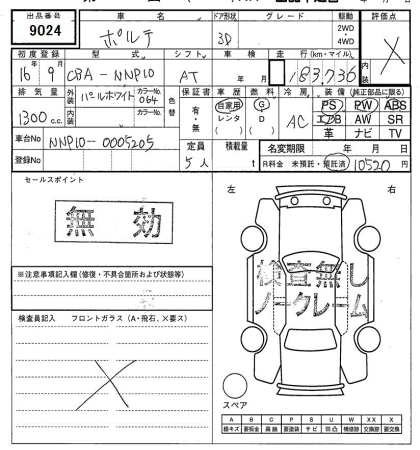 出品番号 車名 ドア形状 グレード 駆動 評価点
9024 ポルテ 3D 2WD ・ 4WD
初度登録 型式 シフト 車検 走行(km・マイル) 内装
16年 9月 CBA-NNP10 AT 年 月 183,736
排気量 外装 カラーNo. 色替 保証書 車歴 燃料 冷房 装備(純正部品に限る)
1300 c.c. パールホワイト 064 有・無 自家用 レンタ ( ) G ・ D ( ) AC PS PW ABS
内装 カラーNo. エアB AW SR
革 ナビ TV
車台No NNP10-0005205 定員 積載量 名変期限 年 月 日
登録No 5人 t R料金 未預託・預託済 10520 円
セールスポイント 左 右
無効
※注意事項記入欄(修復・不具合箇所および状態等)
検査無し
ノークレーム
検査員記入 フロントガラス(A・飛石、×要ス)
スペア
A B C P S U W XX X
線キズ 要板金 腐蝕 要塗装 サビ 凹凸 補修跡 交換跡 要交換